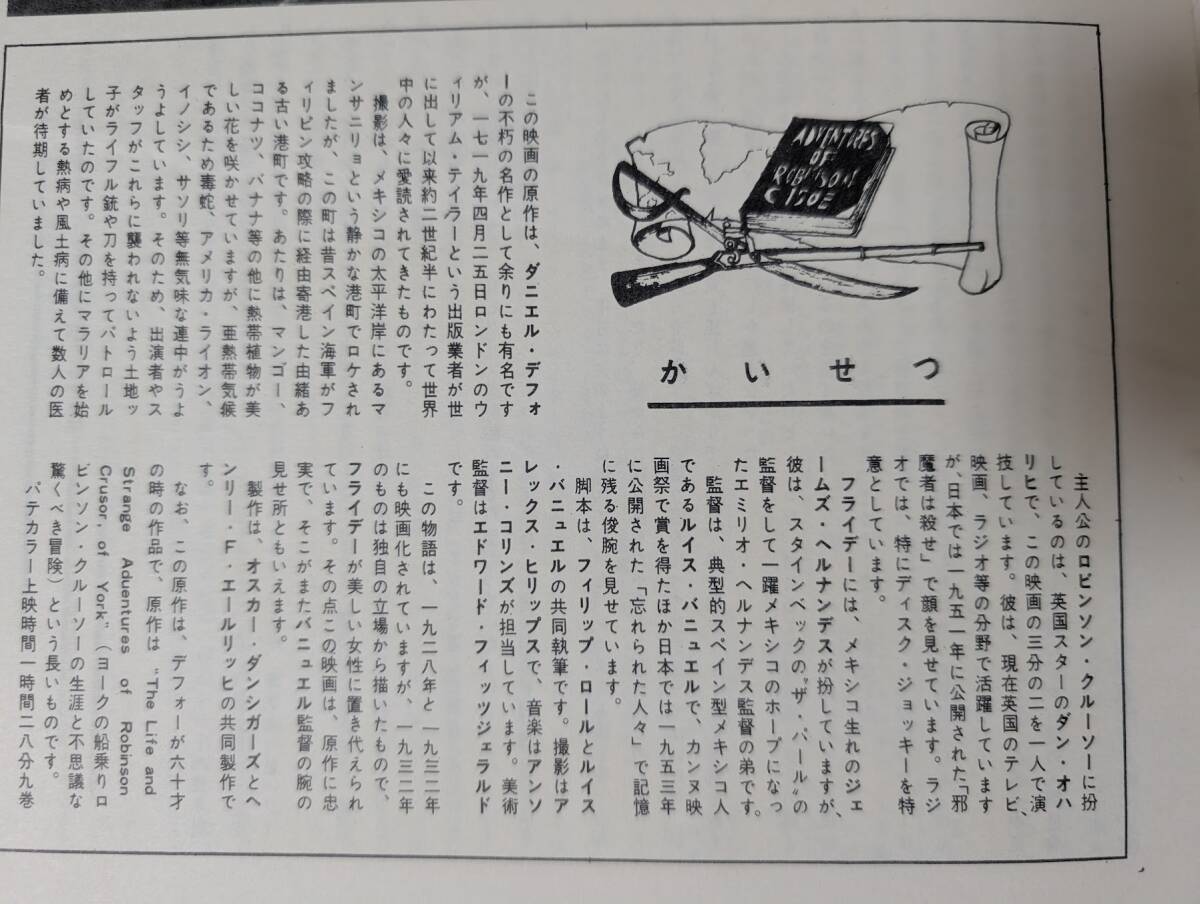 ADVENTURES
OF
ROBINSON
C ISOE
かいせつ
この映画の原作は、ダニエル・デフォ
ーの不朽の名作として余りにも有名です
が、一七一九年四月二五日ロンドンのウ
ィリアム・テイラーという出版業者が世
に出して以来約二世紀半にわたって世界
中の人々に愛読されてきたものです。
撮影は、メキシコの太平洋岸にあるマ
ンサニリョという静かな港町でロケされ
ましたが、この町は昔スペイン海軍がフ
ィリピン攻略の際に経由寄港した由緒あ
る古い港町です。あたりは、マンゴー、
ココナツ、バナナ等の他に熱帯植物が美
しい花を咲かせていますが、亜熱帯気候
であるため毒蛇、アメリカ・ライオン、
イノシシ、サソリ等無気味な連中がうよ
うよしています。そのため、出演者やス
タッフがこれらに襲われないよう土地ッ
子がライフル銃や刀を持ってパトロール
していたのです。その他にマラリアを始
めとする熱病や風土病に備えて数人の医
者が待期していました。
主人公のロビンソン・クルーソーに扮
しているのは、英国スターのダン・オハ
リヒで、この映画の三分の二を一人で演
技しています。彼は、現在英国のテレビ、
映画、ラジオ等の分野で活躍しています
が、日本では一九五一年に公開された「邪
魔者は殺せ」で顔を見せています。ラジ
オでは、特にディスク・ジョッキーを特
意としています。
フライデーには、メキシコ生れのジェ
ームズ・ヘルナンデスが扮していますが、
彼は、スタインベックの〝ザ・パール〟の
監督をして一躍メキシコのホープになっ
たエミリオ・ヘルナンデス監督の弟です。
監督は、典型的スペイン型メキシコ人
であるルイス・バニュエルで、カンヌ映
画祭で賞を得たほか日本では一九五三年
に公開された「忘れられた人々」で記憶
に残る俊腕を見せています。
脚本は、フィリップ・ロールとルイス
・バニュエルの共同執筆です。撮影はア
レックス・ヒリップスで、音楽はアンソ
ニー・コリンズが担当しています。美術
監督はエドワード・フィッツジェラルド
です。
この物語は、一九二八年と一九三二年
にも映画化されていますが、一九三二年
のものは独自の立場から描いたもので、
フライデーが美しい女性に置き代えられ
ています。その点この映画は、原作に忠
実で、そこがまたバニュエル監督の腕の
見せ所ともいえます。
製作は、オスカー・ダンシガーズとヘ
ンリー・F・エールリッヒの共同製作で
す。
なお、この原作は、デフォーが六十才
の時の作品で、原作は "The Life and
Strange Aduentures of Robinson
Crusor, of York"（ヨークの船乗りロ
ビンソン・クルーソーの生涯と不思議な
驚くべき冒険）という長いものです。
パテカラー上映時間一時間二八分九巻